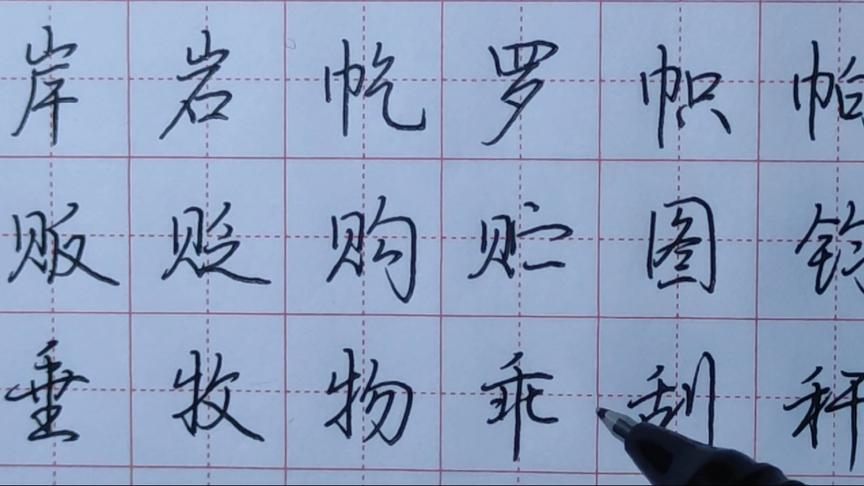 岸岩帆罗帜帕
贩贬购贮图钓
垂牧物乖刮秆